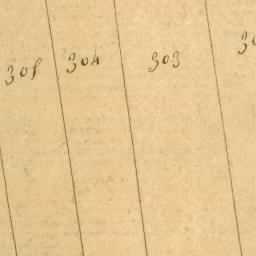 305 304 303